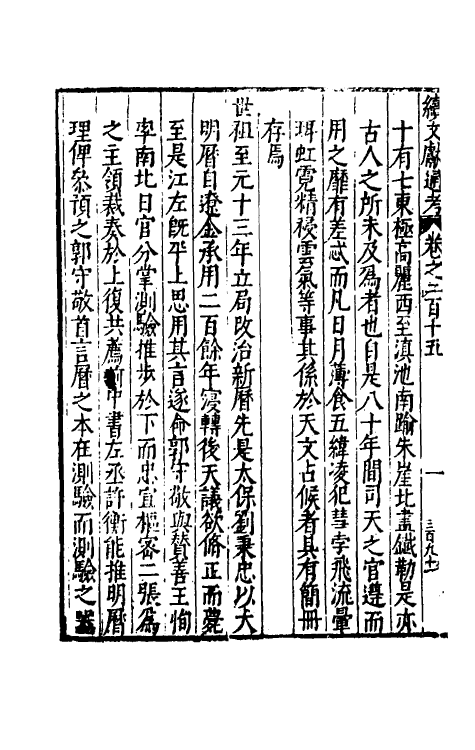 續文獻通考 卷之二百十五 一 三百九十
十有七東極高麗西至滇池南踰朱崖北盡鐵勒是亦
古人之所未及爲者也自是八十年間司天之官遵而
用之靡有差忒而凡日月薄食五緯凌犯彗孛飛流暈
珥虹霓精祲雲氣等事其係於天文占候者具有簡冊
存焉
世祖至元十三年立局改治新曆先是太保劉秉忠以大
明曆自遼金承用二百餘年寖轉後天議欲脩正而薨
至是江左旣平上思用其言遂命郭守敬與贊善王恂
率南北日官分掌測驗推步於下而忠宜樞密二張爲
之主領裁奏於上復共薦前中書左丞許衡能推明曆
理俾叅預之郭守敬首言曆之本在測驗而測驗之器